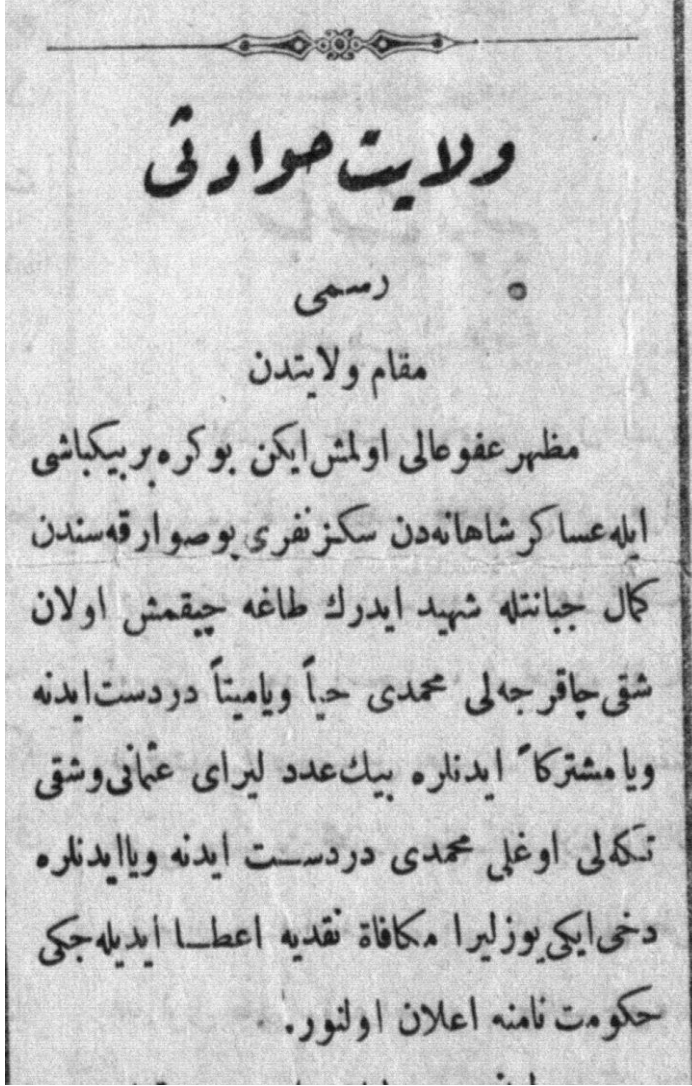 ولایت حوادثی
رسمی
مقام ولایتدن
مظهر عفو عالی اولمش ایکن بو کره بر بیکباشی
ایله عساکر شاهانه‌دن سکز نفری بوصو ارقه‌سندن
کمال جبانتله شهید ایدرك طاغه چیقمش اولان
شقی چاقرجه‌لی محمدی حیاً ویا میتاً دردست ایدنه
ویا مشترکاً ایدنلره بیك عدد لیرای عثمانی و شقی
تکه‌لی اوغلی محمدی دردست ایدنه ویا ایدنلره
دخی ایکی یوز لیرا مکافاة نقدیه اعطا ایدیله جکی
حکومت نامنه اعلان اولنور.